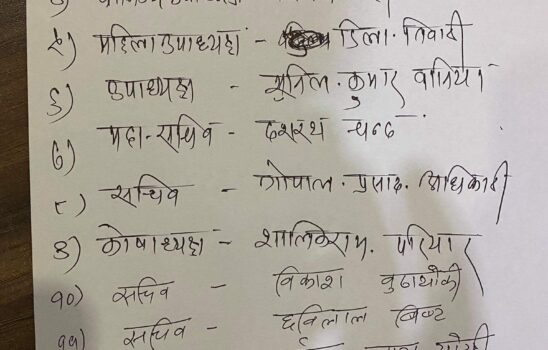 ५) महिला उपाध्यक्ष - डिला. तिवारी
६) उपाध्यक्ष - सुनिल. कुमार वानिया
७) महा-सचिव - दशरथ चन्द
८) सचिव - गोपाल. प्रसाद. अधिकारी
९) कोषाध्यक्ष - शालिकराम. परियार
१०) सचिव - विकाश वुढाथोकी
११) सचिव - छविलाल विष्ट